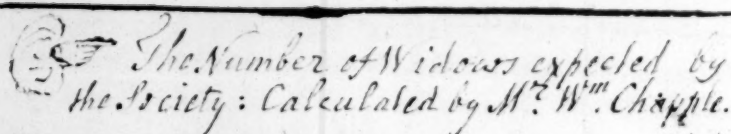 The Number of Widows expected by
the Society: Calculated by Mr. Wm. Chapple.